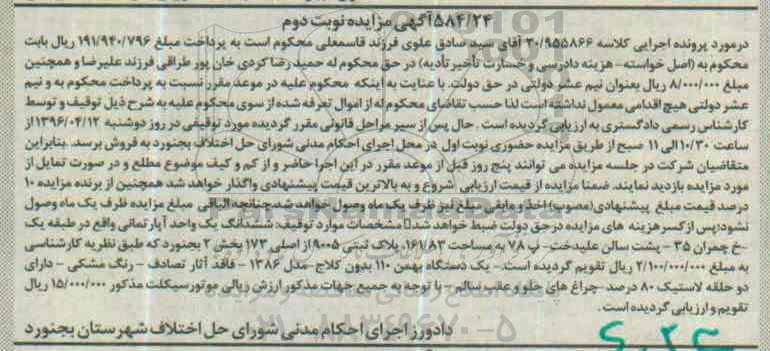 ۵۸۴/۲۴آگهی مزایده نوبت دوم
درمورد پرونده اجرایی کلاسه ۳۰/۹۵۵۸۶۶ آقای سید صادق علوی فرزند قاسمعلی محکوم است به پرداخت مبلغ ۱۹۱/۹۴۰/۷۹۶ ریال بابت
محکوم به (اصل خواسته- هزینه دادرسی و خسارت تأخیر تأدیه) در حق محکوم له حمید رضا کردی خان پور طراقی فرزند علیرضا و همچنین
مبلغ ۸/۰۰۰/۰۰۰ ریال بعنوان نیم عشر دولتی در حق دولت. با عنایت به اینکه محکوم علیه در موعد مقرر نسبت به پرداخت محکوم به و نیم
عشر دولتی هیچ اقدامی معمول نداشته است لذا حسب تقاضای محکوم له از اموال تعرفه شده از سوی محکوم علیه به شرح ذیل توقیف و توسط
کارشناس رسمی دادگستری به ارزیابی گردیده است . حال پس از سیر مراحل قانونی مقرر گردیده مورد توقیفی در روز دوشنبه ۱۳۹۶/۰۴/۱۲ از
ساعت ۱۰/۳۰ الی ۱۱ صبح از طریق مزایده حضوری نوبت اول در محل اجرای احکام مدنی شورای حل اختلاف بجنورد به فروش برسد. بنابراین
متقاضیان شرکت در جلسه مزایده می توانند پنج روز قبل از موعد مقرر در این اجرا حاضر و از کم و کیف موضوع مطلع و در صورت تمایل از
مورد مزایده بازدید نمایند. ضمنا مزایده از قیمت ارزیابی شروع و به بالاترین قیمت پیشنهادی واگذار خواهد شد همچنین از برنده مزایده ۱۰
درصد قیمت مبلغ پیشنهادی(مصوب) اخذ و مابقی مبلغ نیز ظرف یک ماه وصول خواهد شد.چنانچه الباقی مبلغ مزایده ظرف یک ماه وصول
نشود؛پس از کسر هزینه های مزایده در حق دولت ضبط خواهد شد.۱) مشخصات موارد توقیف: ششدانگ یک واحد آپارتمانی واقع در طبقه یک
-خ چمران ۳۵ - پشت سالن علیدخت- پ ۷۸ به مساحت ۱۶۱/۸۳. پلاک ثبتی ۹۰۰۵ از اصلی ۱۷۳ بخش ۲ بجنورد که طبق نظریه کارشناسی
به مبلغ ۲/۱۰۰/۰۰۰/۰۰۰ ریال تقویم گردیده است.- یک دستگاه بهمن ۱۱۰ بدون کلاج-مدل ۱۳۸۶ - فاقد آثار تصادف - رنگ مشکی - دارای
دو حلقه لاستیک ۸۰ درصد -چراغ های جلو و عقب سالم - با توجه به جمیع جهات مذکور ارزش ریالی موتورسیکلت مذکور ۱۵/۰۰۰/۰۰۰ ریال
تقویم و ارزیابی گردیده است.
دادورز اجرای احکام مدنی شورای حل اختلاف شهرستان بجنورد
۰۲۱-۸۸۳۴۹۶۷۰-۵